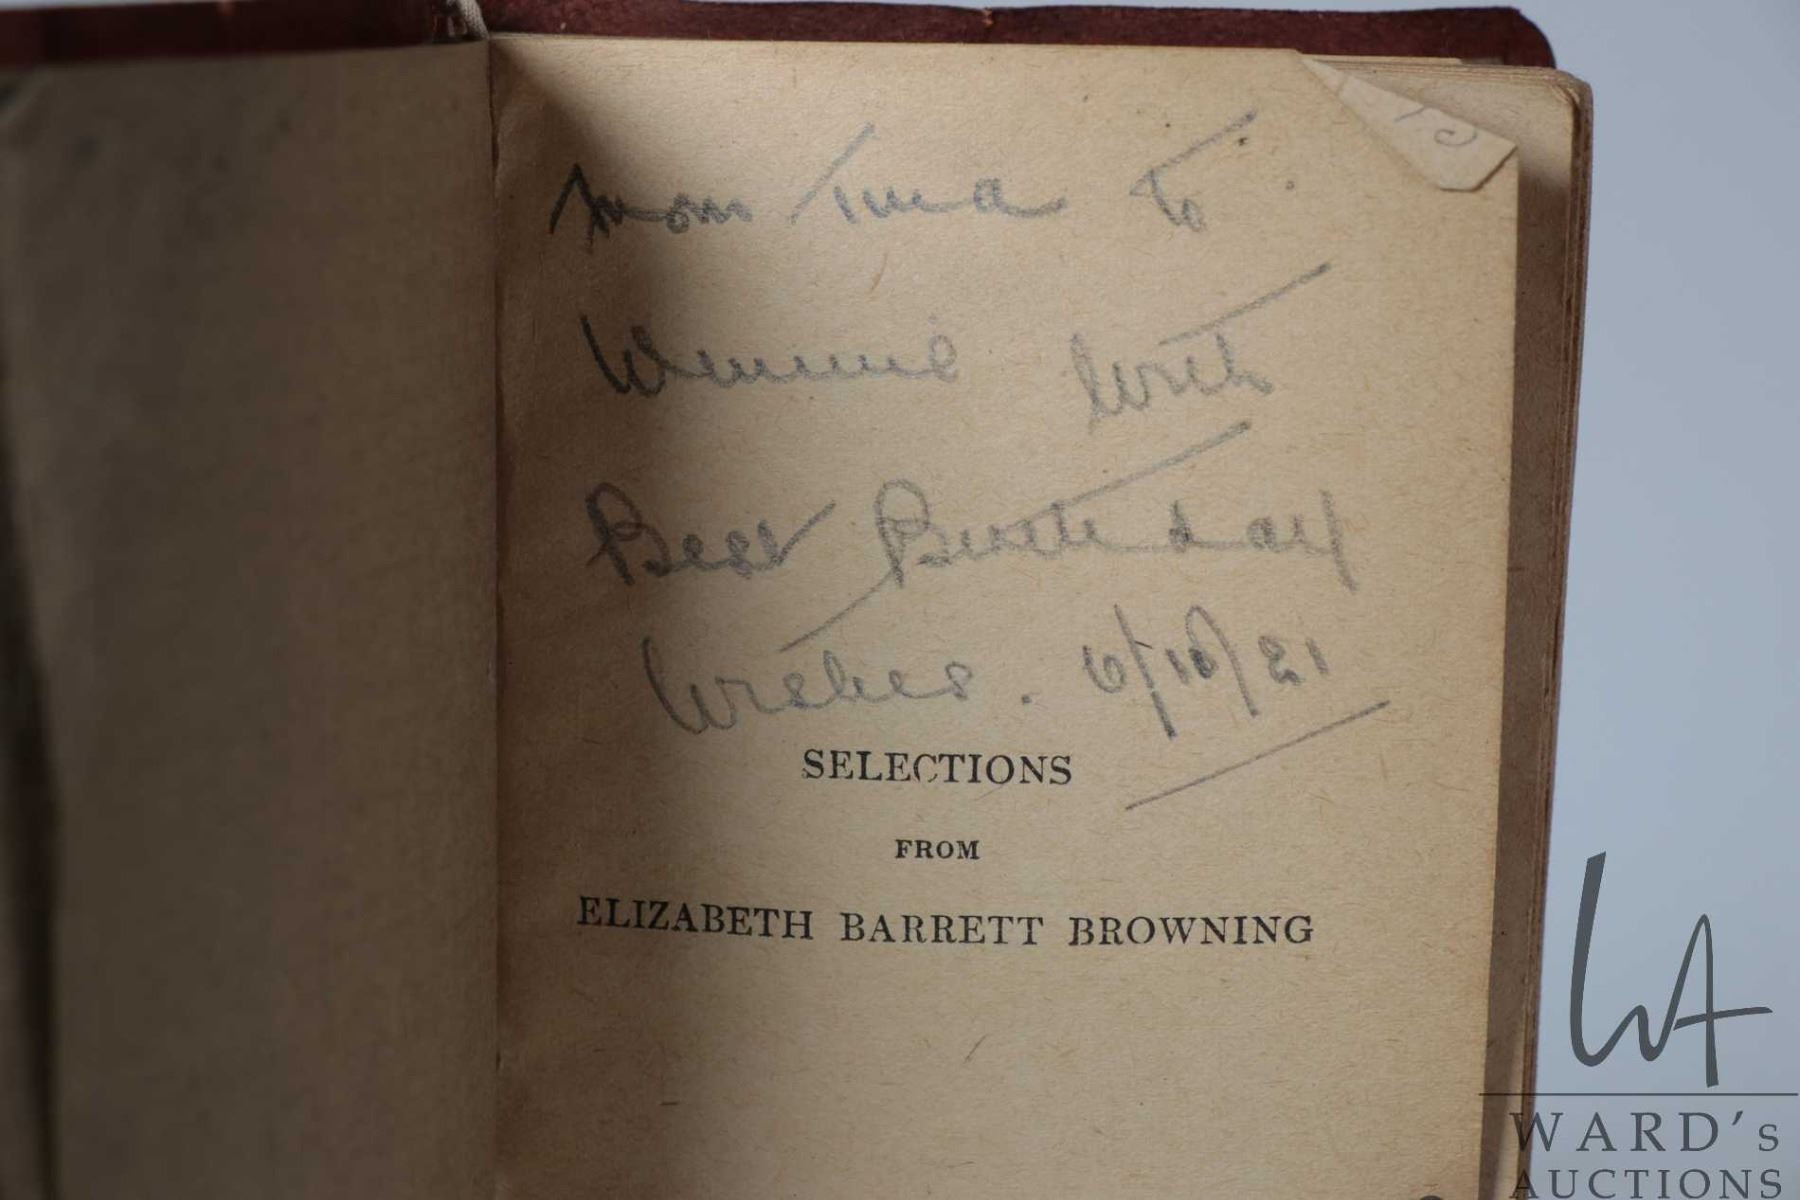 from Tina to
Winnie With
Best Birthday
Wishes. 6/10/21
SELECTIONS
FROM
ELIZABETH BARRETT BROWNING
WA
WARD's
AUCTIONS